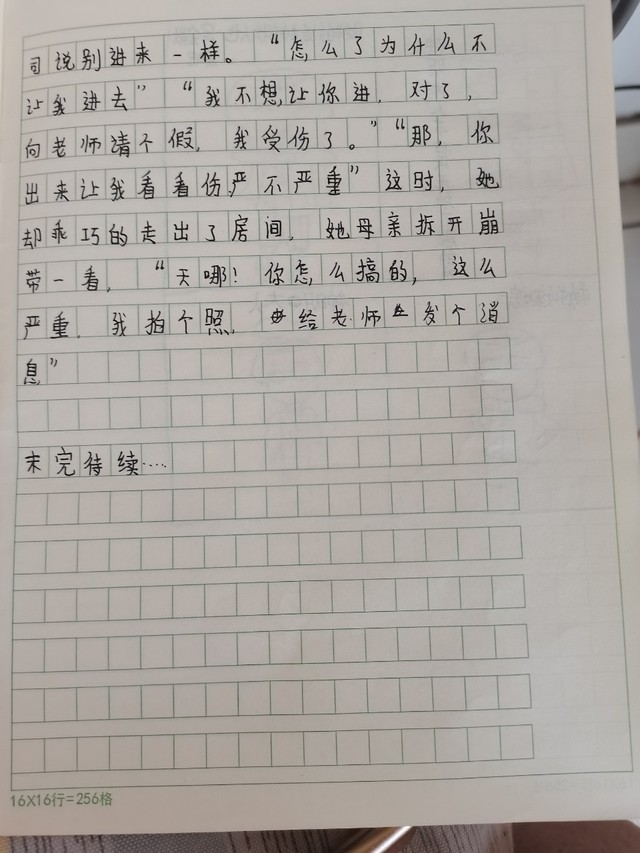 司说别进来一样。“怎么了为什么不
让我进去”“我不想,让你进,对了,
向老师请个假,我受伤了。”“那,你
出来让我看看伤严不严重”这时,她
却乖巧的走出了房间,她母亲拆开崩
带一看,“天哪!你怎么搞的,这么
严重,我拍个照,给老师发个消
息”
未完待续....
16X16行=256格